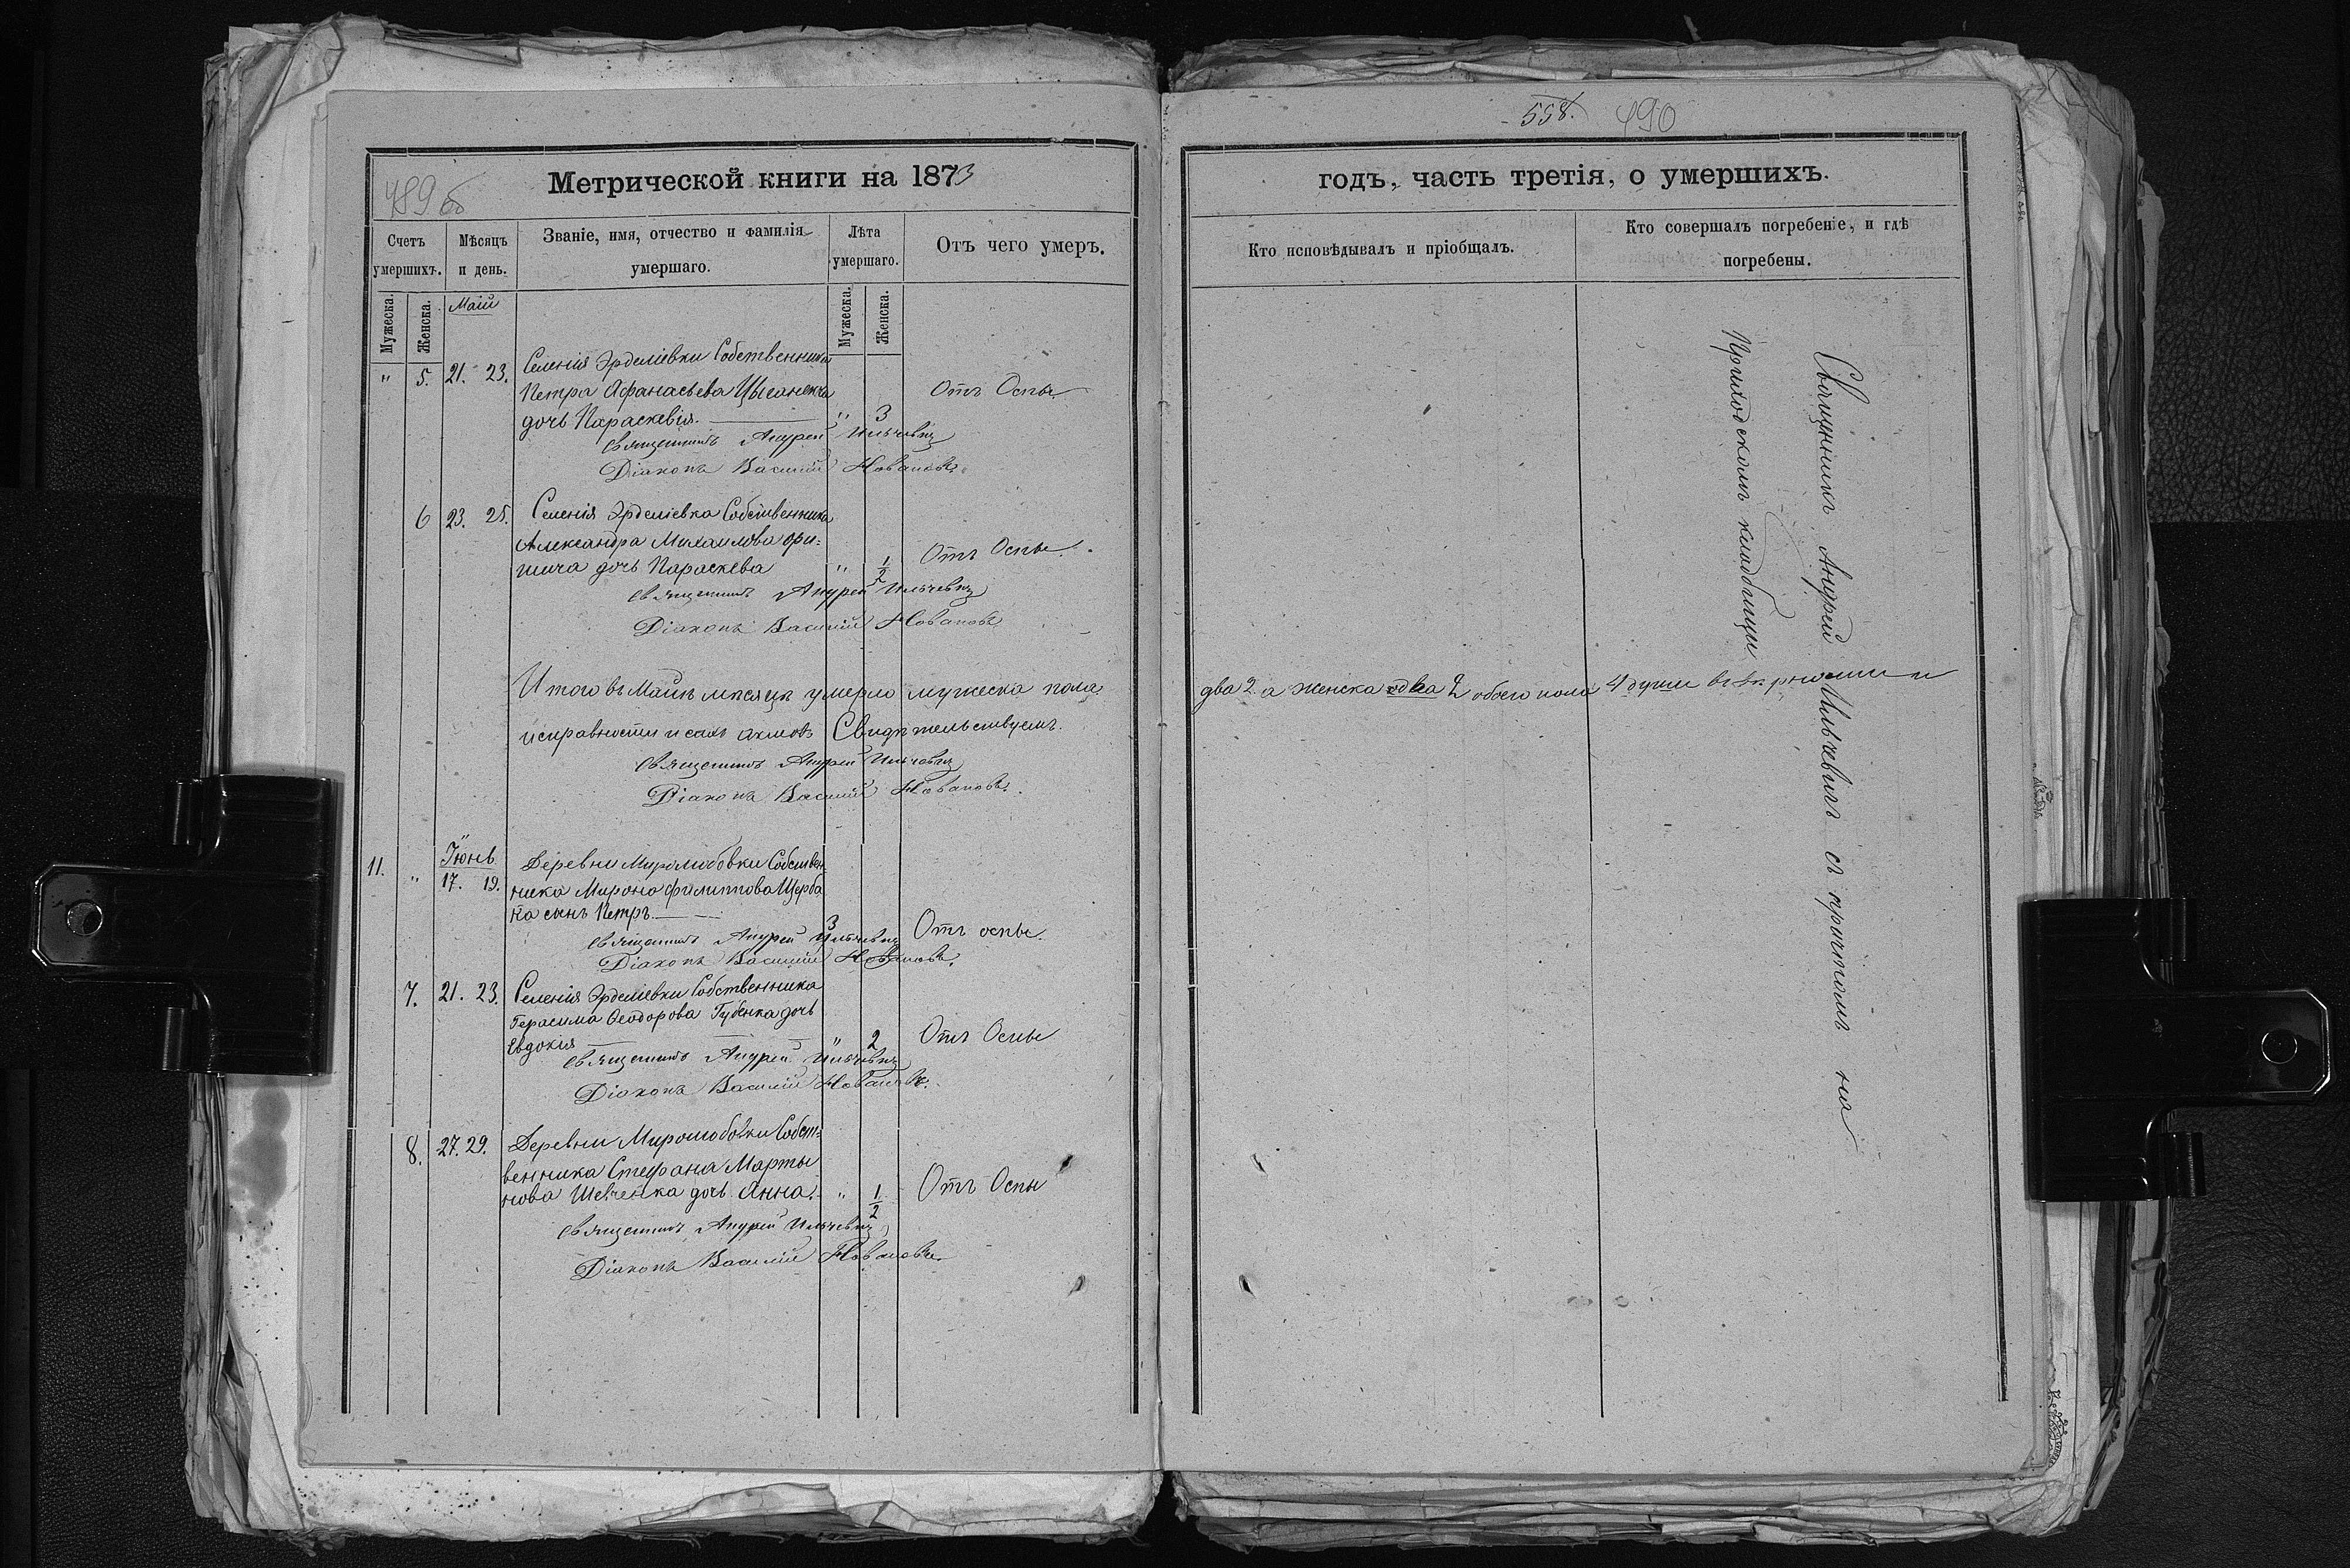 489 об
Метрической книги на 1873
Счетъ умершихъ.
Мѣсяцъ и день.
Званіе, имя, отчество и фамилія умершаго.
Лѣта умершаго.
Отъ чего умеръ.
Мужеска.
Женска.
Май
Мужеска.
Женска.
" 5. 21. 23. Селенія Эрделіевки Собственника
Петра Афанасьева Цыганка
дочь Параскевія. " 3 Отъ Оспы
Священникъ Андрей Ильчевичъ
Діаконъ Василій
6 23. 25. Селенія Эрделіевка Собственника
Александра Михаилова Ори=
шича дочь Параскева " 1/2 Отъ Оспы.
Священникъ Андрей Ильчевичъ
Діаконъ Василій
Итого въ Маѣ мѣсяцѣ умерло мужеска пола
исправности и сихъ актовъ Свидѣтельствуемъ.
Священникъ Андрей Ильчевичъ
Діаконъ Василій
Іюнь
11. " 17. 19. Деревни Миролюбовки Собствен=
ника Мирона Филиппова Щерба
ка сынъ Петръ 3 Отъ оспы.
Священникъ Андрей Ильчевичъ
Діаконъ Василій
7. 21. 23. Селенія Эрделіевки Собственника
Герасима Ѳеодорова Губенка дочь
Евдокия " 2 Отъ Оспы
Священникъ Андрей Ильчевичъ
Діаконъ Василій
8. 27. 29. Деревни Миролюбовки Собст=
венника Стефана Марты
нова Шевченка дочь Анна. " 1/2 Отъ Оспы
Священникъ Андрей Ильчевичъ
Діаконъ Василій
558. 490
годъ, часть третія, о умершихъ.
Кто исповѣдывалъ и пріобщалъ.
Кто совершалъ погребеніе, и гдѣ погребены.
Священникъ Андрей Ильчевичъ съ причтомъ на
Приходскомъ кладбищи
два 2 а женска два 2 обоего пола 4 души въ вѣрности и